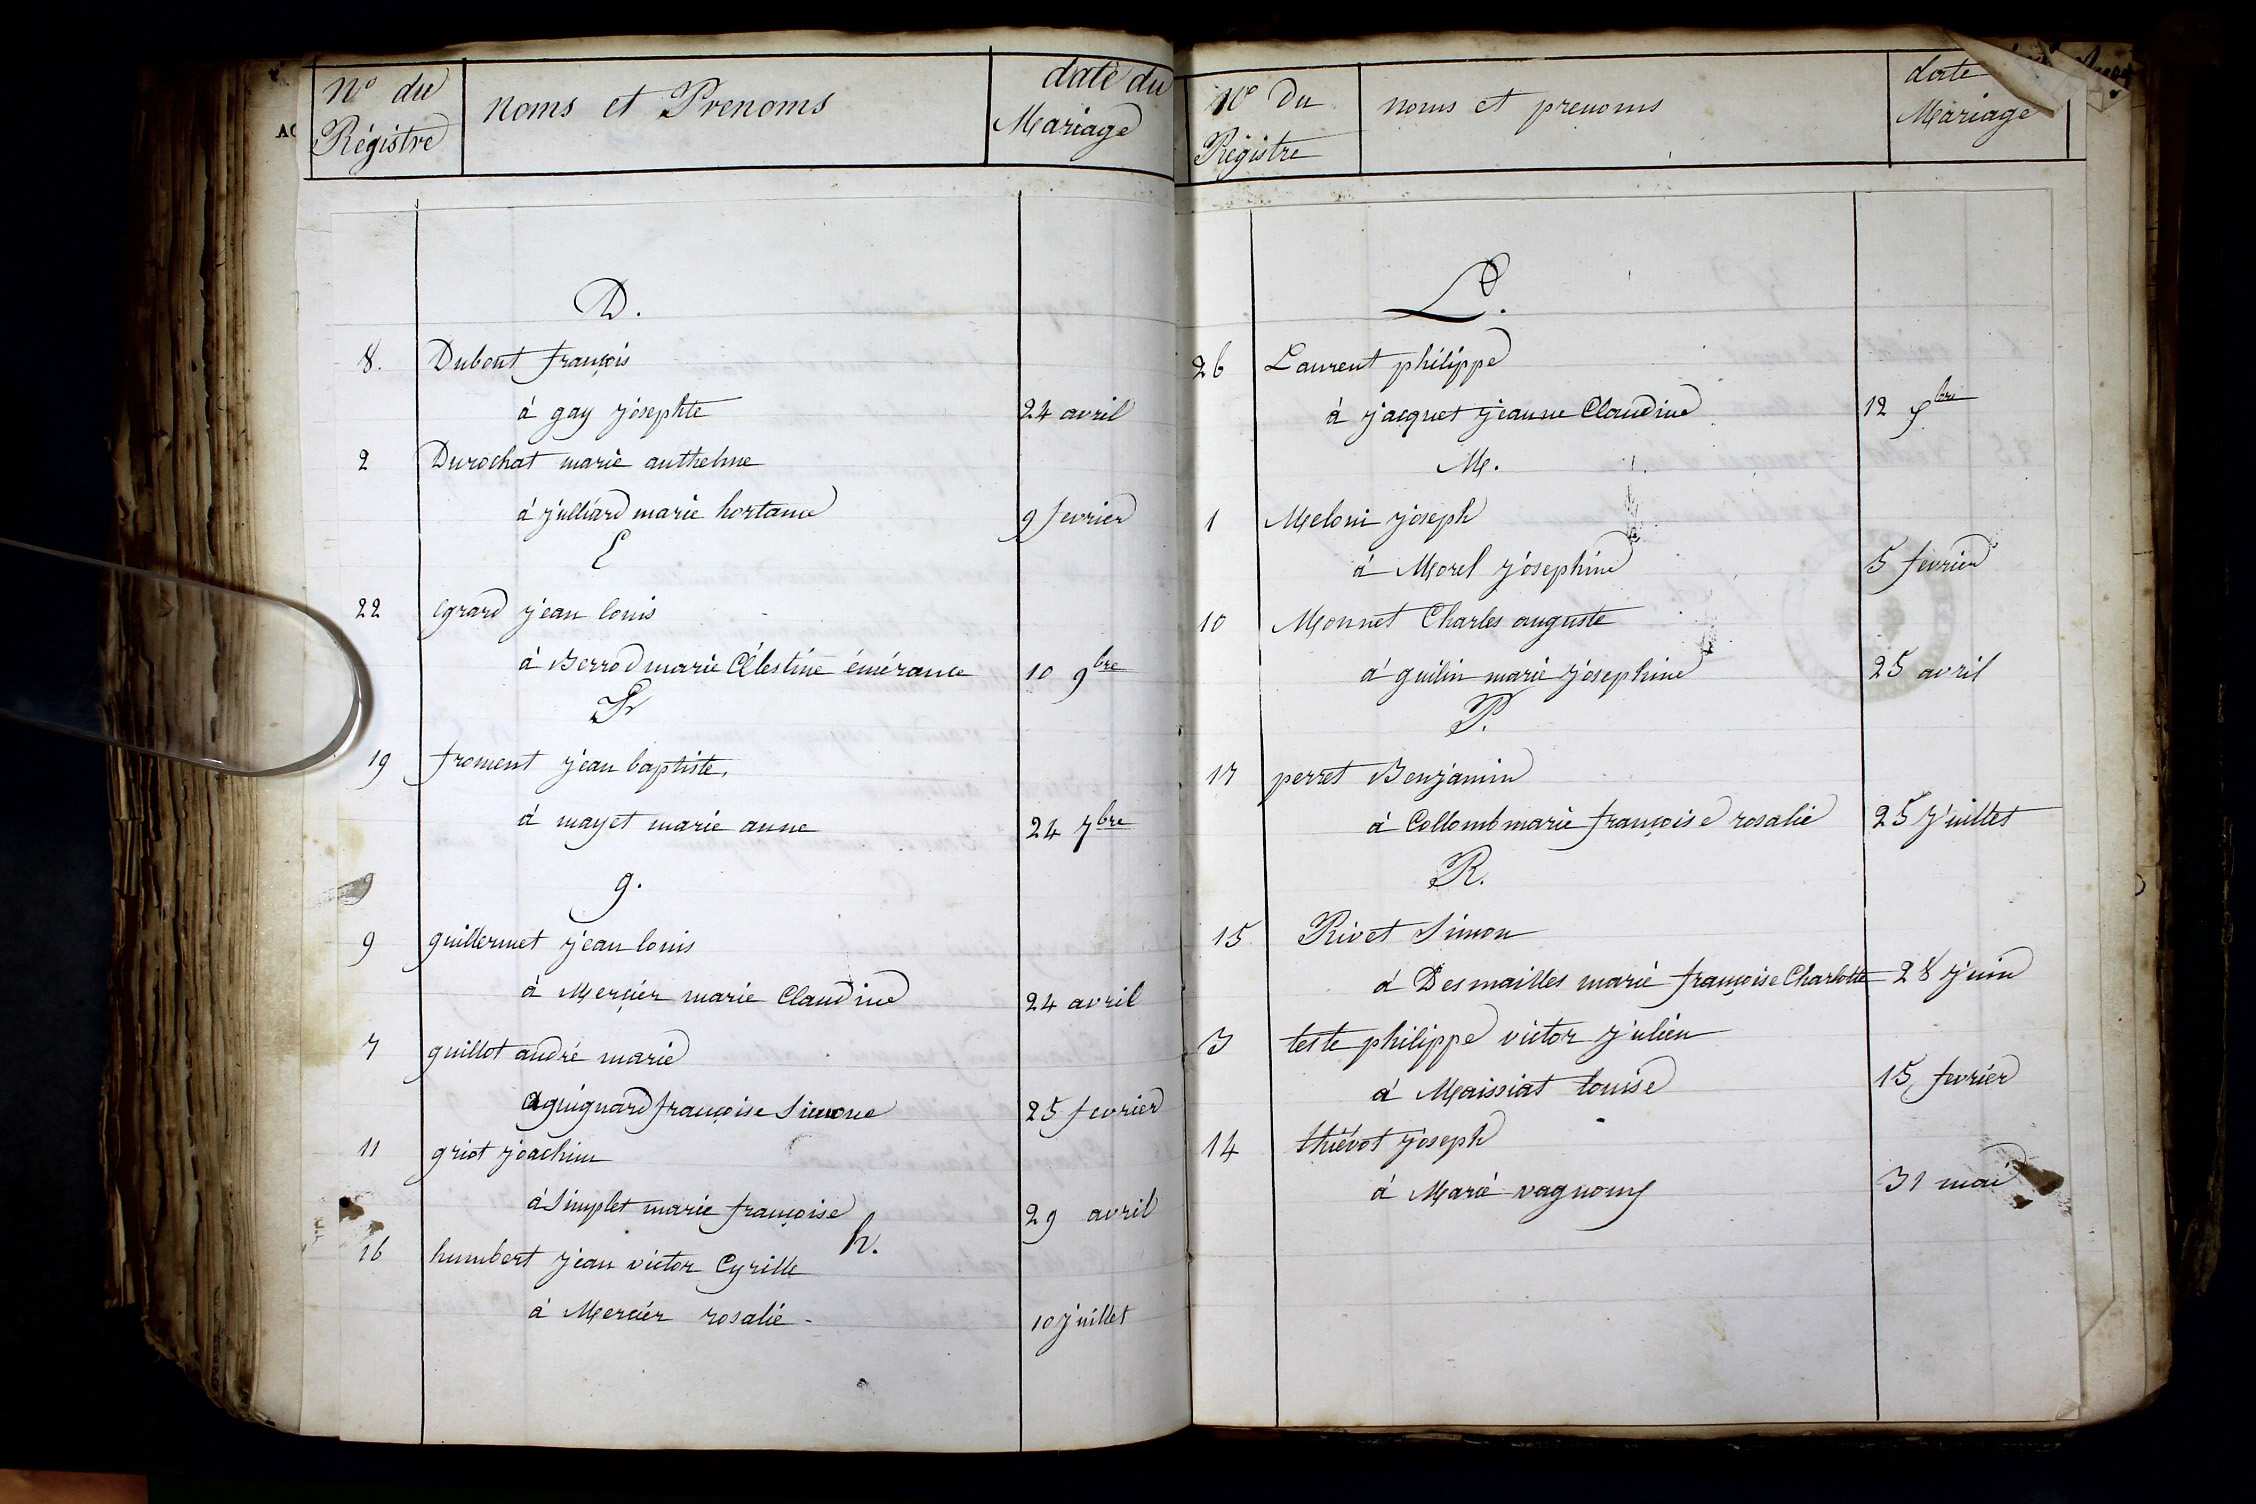 N° du Régistre noms et Prenoms date du Mariage
D.
8. Dubout françois
à gay josephte 24 avril
2 Durochat marie anthelme
à julliard marie hortance 9 fevrier
E
22 Egrard jean louis
à Berrod marie Célestine émérance 10 9bre
F
19 froment jean baptiste,
à mayet marie anne 24 7bre
g.
9 guillermet jean louis
à Mercier marie Claudine 24 avril
7 guillot andré marie
à guignard françoise Simone 25 fevrier
11 griot joachim
à Simplet marie françoise 29 avril
h.
16 humbert jean victor Cyrille
à Mercier rosalie - 10 juillet
N° Du Régistre noms et prenoms date Mariage
L.
26 Laurent philippe
à jacquet jeanne Claudine 12 Xbre
M.
1 Meloni joseph
à Morel josephine 5 fevrier
10 Monnet Charles auguste
à guilin marie josephine 25 avril
P.
17 perret Benjamin
à Collomb marie françoise rosalie 25 juillet
R.
15 Rivet Simon
à Desmailles marie françoise Charlotte 28 juin
3 teste philippe victor julien
à Maissiat louise 15 fevrier
14 thiévot joseph
à Marie 31 mai